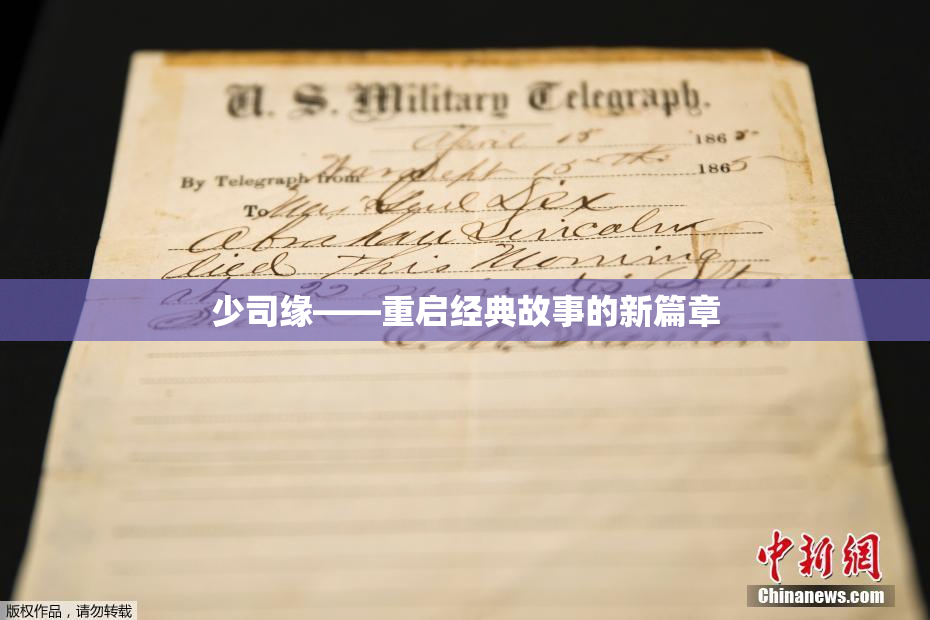 U. S. Military Telegraph.
April 15 1865
By Telegraph from War Dept 15th 1865
To Maj Genl Dix
Abraham Lincoln
died This Morning
at 22 minutes after
少司缘——重启经典故事的新篇章
E. M. Stanton
中新網
Chinanews.com
版权作品,请勿转载